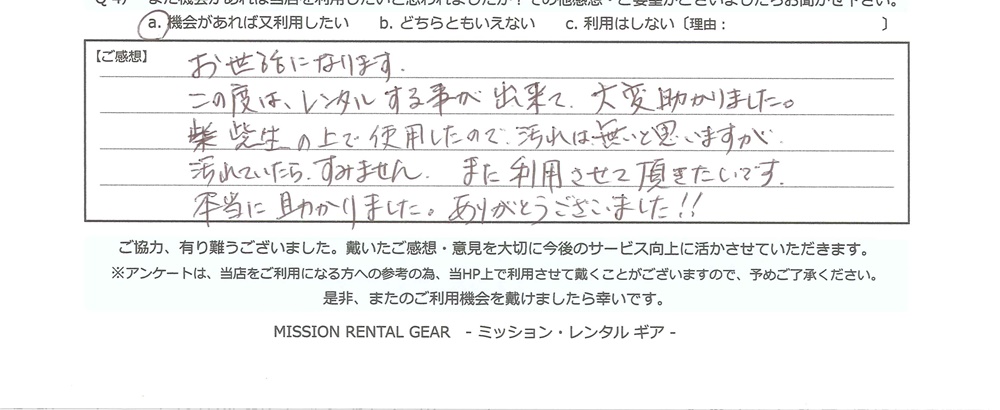 Q 4) また機会があれば当店を利用したいと思われましたか？その他感想・ご要望がございましたらお聞かせ下さい。
a. 機会があれば又利用したい b. どちらともいえない c. 利用はしない〔理由： 〕
【ご感想】
お世話になります.
この度は、レンタルする事が出来て、大変助かりました。
の上で使用したので、汚れは無いと思いますが
汚れていたら、すみません. また利用させて頂きたいです.
本当に助かりました。ありがとうございました!!
ご協力、有り難うございました。戴いたご感想・意見を大切に今後のサービス向上に活かさせていただきます。
※アンケートは、当店をご利用になる方への参考の為、当HP上で利用させて戴くことがございますので、予めご了承ください。
是非、またのご利用機会を戴けましたら幸いです。
MISSION RENTAL GEAR - ミッション・レンタル ギア -